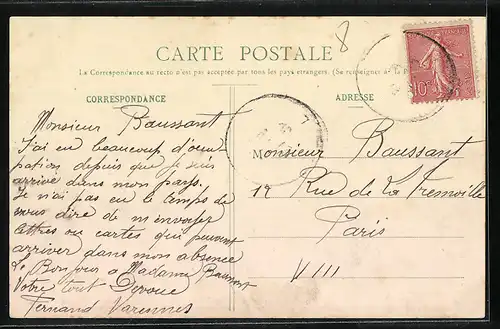 8
CARTE POSTALE
La Correspondance au recto n'est pas acceptée par tous les pays étrangers. (Se renseigner à la P
CORRESPONDANCE
Monsieur Baussant
J'ai eu beaucoup d'ocu
pation depuis que je suis
arrivé dans mon pays.
Je n'ai pas eu le temps de
vous dire de m'envoyer
lettres ou cartes qui peuvent
arriver dans mon absence
Bonjour à Madame Baussant
Votre tout Devoué
Fernand Varennes
ADRESSE
Monsieur Baussant
12 Rue de La Tremoille
Paris
VIII
10c